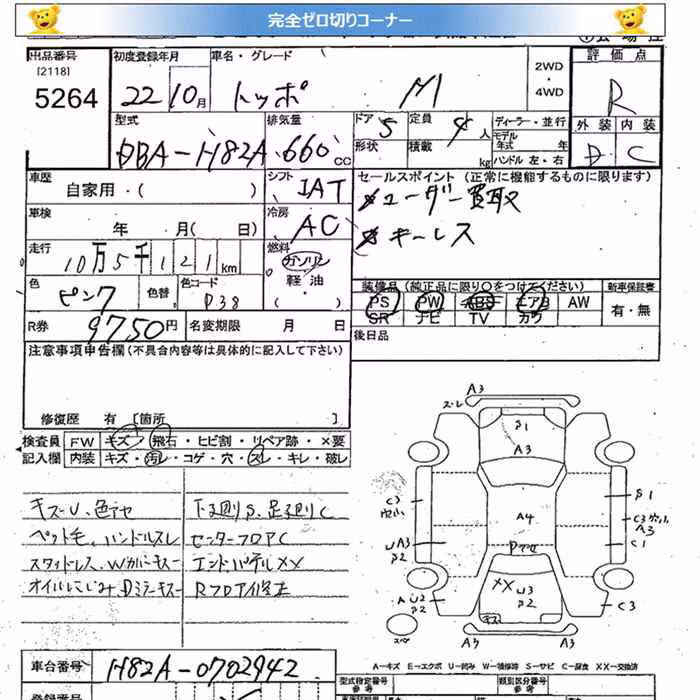 完全ゼロ切りコーナー
出品番号
[2118]
5264
初度登録年月
22 10月
車名・グレード
トッポ M
2WD
・
4WD
評価点
R
外装 内装
D C
型式
DBA-H82A
排気量
660cc
ドア 5
形状
定員 4人
積載 kg
ディーラー・並行
モデル年式 年
ハンドル 左・右
車歴
自家用・( )
シフト
IAT
セールスポイント (正常に機能するものに限ります)
ユーザー買取
キーレス
車検
年 月( 日)
冷房
AC
走行
10万5千121km
燃料
ガソリン
軽油
( )
色
ピンク
色替
色コード
P38
装備品 (純正品に限り○をつけてください)
PS PW ABS エアB AW
SR ナビ TV カワ
新車保証書
有・無
R券 9750円
名変期限 月 日
後日品
注意事項申告欄(不具合内容等は具体的に記入して下さい)
修復歴 有 [箇所 ]
検査員 FW キズ・飛石・ヒビ割・リペア跡・×要
記入欄 内装 キズ・汚レ・コゲ・穴・スレ・キレ・破レ
キズーU、色アセ
下廻りS、足廻りC
ペット毛、ハンドルスレ
センターフロアC
スタッドレス、Wカバーキズー
エンドパネルXX
オイルにじみ Dミラーキズー
Rフロア修正
A3
スレ
A3
A4
XX
W3
キズ
C3
C1
C3
A3
A3
スペア
A-キズ E-エクボ U-凹み W-補修跡 S-サビ C-腐食 XX-交換済
車台番号
H82A-0702942
登録番号
型式指定番号
参考
類別区分番号
参考